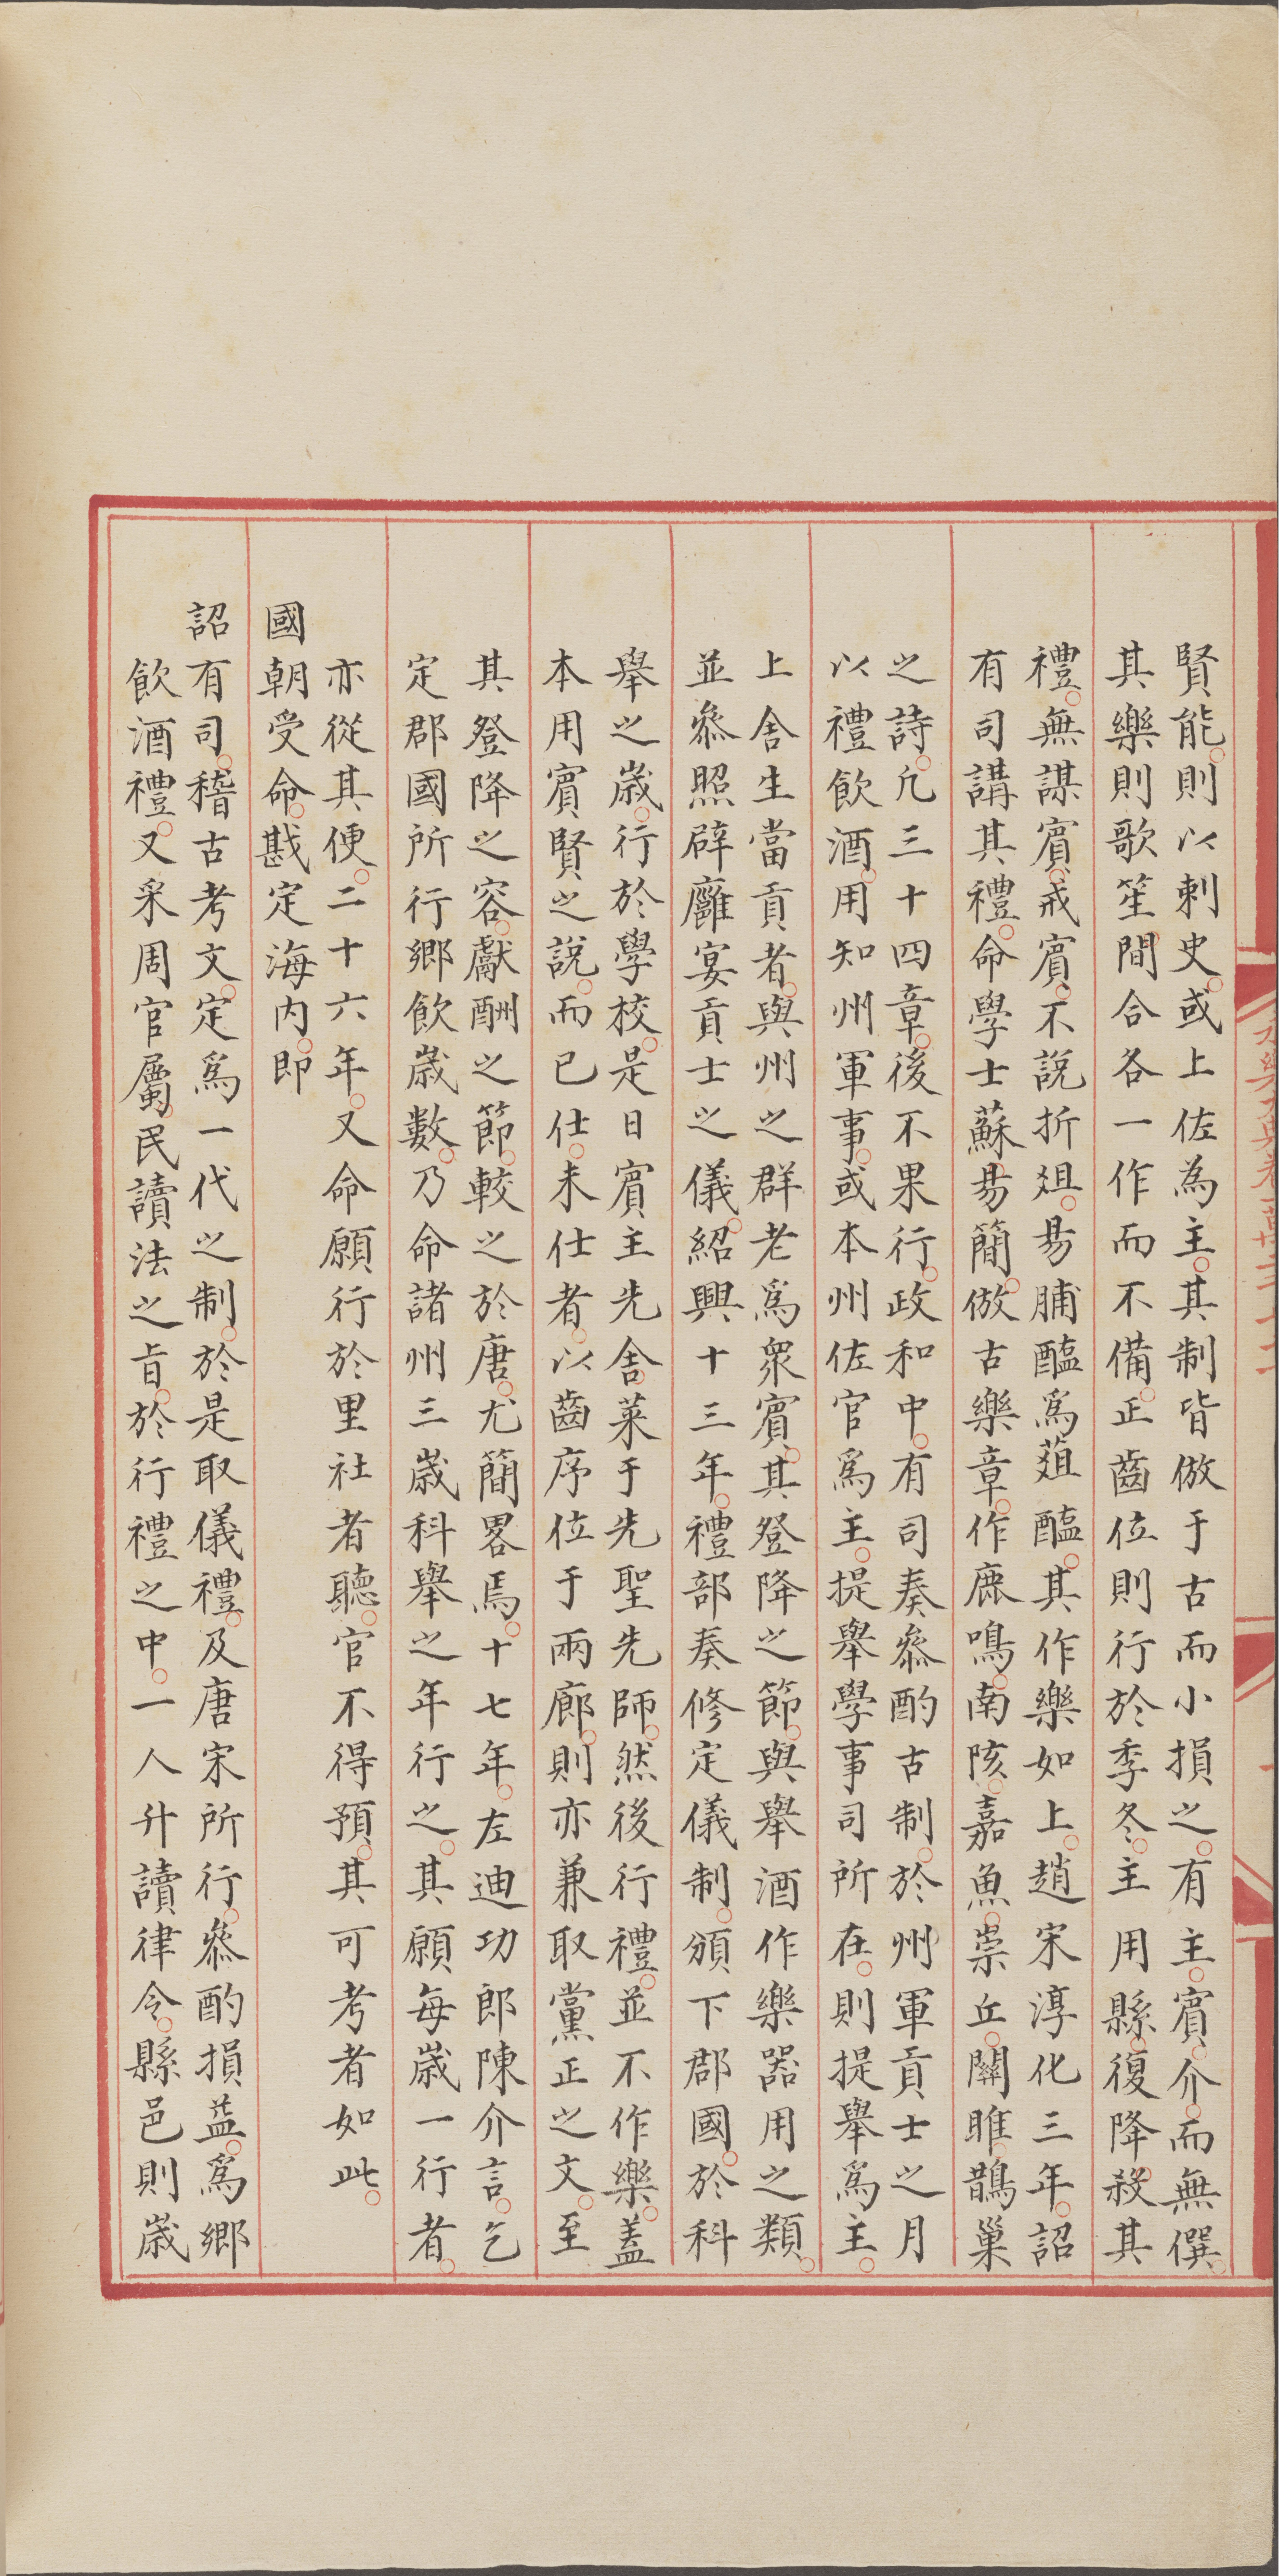 賢能則以刺史或上佐為主其制皆倣于古而小損之有主賓介而無僎
其樂則歌笙間合各一作而不備正齒位則行於季冬主用縣復降殺其
禮無謀賓戒賓不說折俎易脯醢爲菹醢其作樂如上趙宋淳化三年詔
有司講其禮命學士蘇易簡倣古樂章作鹿鳴南陔嘉魚崇丘關雎鵲巢
之詩凢三十四章後不果行政和中有司奏叅酌古制於州軍貢士之月
以禮飲酒用知州軍事或本州佐官爲主提舉學事司所在則提舉爲主
上舍生當貢者與州之群老爲衆賓其登降之節與舉酒作樂器用之類
並叅照辟廱宴貢士之儀紹興十三年禮部奏修定儀制頒下郡國於科
舉之歲行於學校是日賓主先舍菜于先聖先師然後行禮並不作樂蓋
本用賓賢之說而已仕未仕者以齒序位于兩廊則亦兼取黨正之文至
其登降之容獻酬之節較之於唐尤簡畧焉十七年左迪功郎陳介言乞
定郡國所行鄉飲歲數乃命諸州三歲科舉之年行之其願每歲一行者
亦從其便二十六年又命願行於里社者聽官不得預其可考者如此
國朝受命戡定海内即
詔有司稽古考文定爲一代之制於是取儀禮及唐宋所行叅酌損益爲鄉
飲酒禮又采周官屬民讀法之旨於行禮之中一人升讀律令縣邑則歲